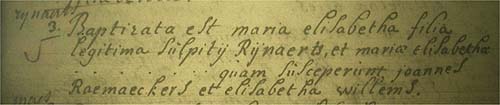 rijnaert
3. Baptizata est maria elisabetha filia
legitima sulpitij Rijnaerts, et mariæ elisabethæ
quam susceperunt joannes
Raemaeckers et elisabetha willems.